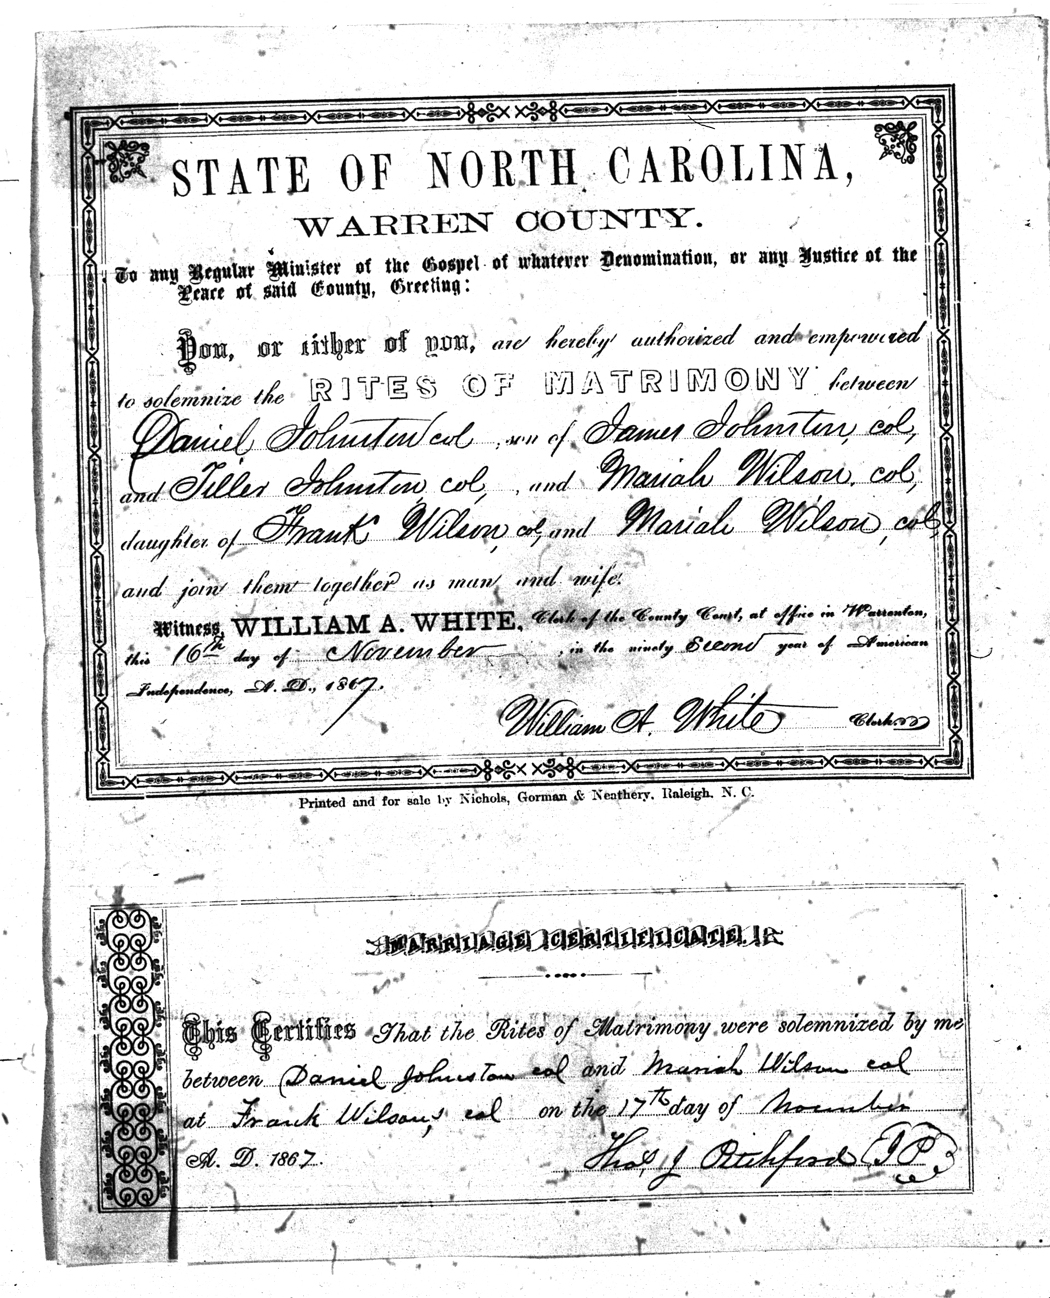 STATE OF NORTH CAROLINA,
WARREN COUNTY.
To any Regular Minister of the Gospel of whatever Denomination, or any Justice of the
Peace of said County, Greeting:
You, or either of you, are hereby authorized and empowered
to solemnize the RITES OF MATRIMONY between
Daniel Johnston col , son of James Johnston, col,
and Tiller Johnston, col, , and Mariah Wilson, col,
daughter of Frank Wilson, col, and Mariah Wilson, col,
and join them together as man and wife.
Witness, WILLIAM A. WHITE, Clerk of the County Court, at office in Warrenton,
this 16th day of November , in the ninety Second year of American
Independence, A. D., 1867.
William A. White Clerk
Printed and for sale by Nichols, Gorman & Neathery, Raleigh, N. C.
MARRIAGE CERTIFICATE.
This Certifies That the Rites of Matrimony were solemnized by me
between Daniel Johnston col and Mariah Wilson col
at Frank Wilson's col on the 17th day of November
A. D. 1867.
Thos J Pitchford J P